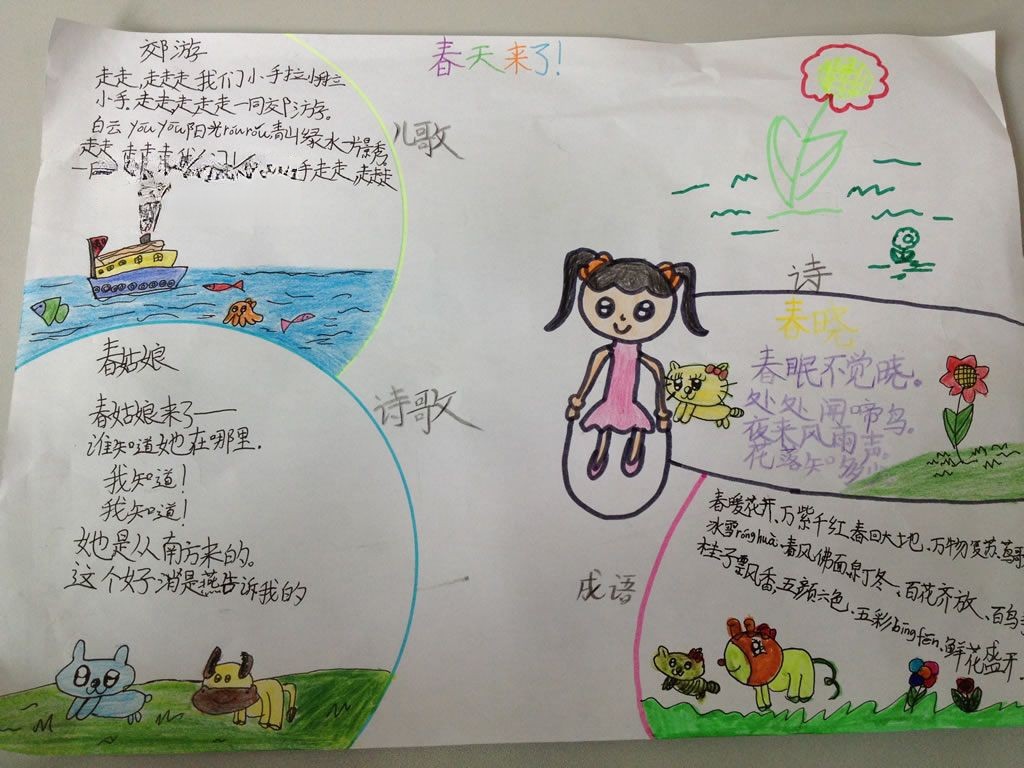 春天来了!
郊游
走走,走走走我们小手拉小手
小手,走走走走走一同去郊游。
白云yōuyōu阳光róuróu青山绿水一片景秀,
走走 走走走我们
手走走,走走走
儿歌
春姑娘
春姑娘来了——
谁知道她在哪里.
我知道!
我知道!
她是从南方来的。
这个好消息是燕告诉我的
诗歌
诗
春晓
春眠不觉晓。
处处闻啼鸟。
夜来风雨声。
花落知多少
成语
春暖花开、万紫千红、春回大地、万物复苏、莺歌
冰雪rónghuà、春风佛面、泉丁冬、百花齐放、百鸟
桂子飘香,五颜六色、五彩bīnfēn、鲜花盛开